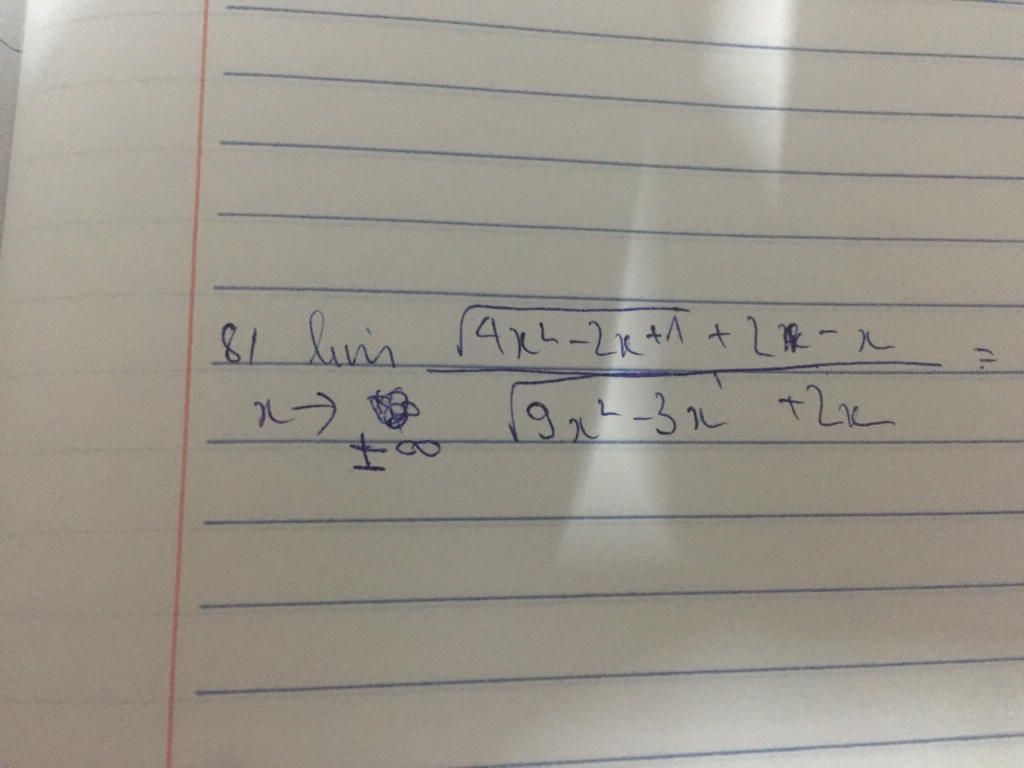 8) lim √(4x² - 2x + 1) + 2 - x =
x → √(9x² - 3x) + 2x
±∞